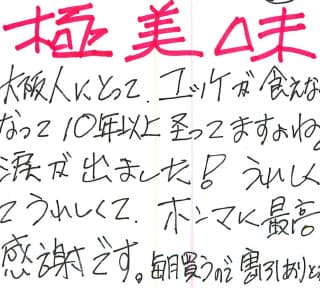 極美味
大阪人にとって、ユッケが食えな
なって10年以上経ってますよね
涙が出ました!うれしく
てうれしくて、ホンマに最高
感謝です。毎月買うので割引ありと